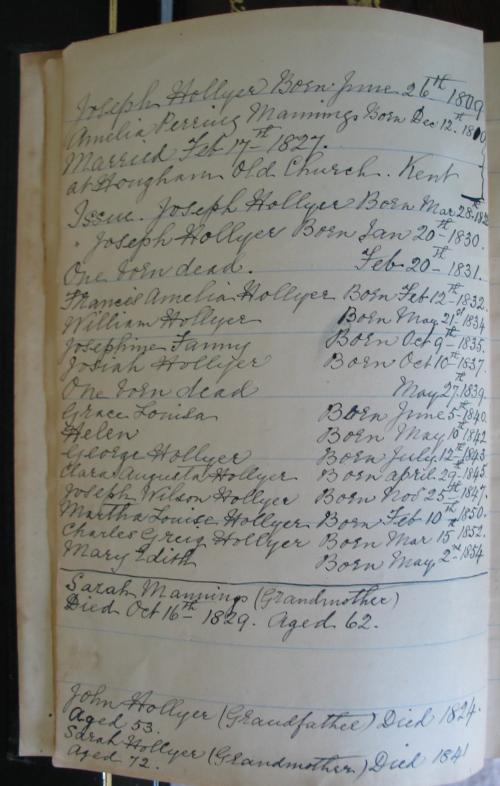 Joseph Hollyer Born June 26th 1809
Amelia Perring Mannings Born Dec 12th 1810
Married Feb 17th 1827.
at Hougham Old Church. Kent
Issue. Joseph Hollyer Born Mar 28th
" Joseph Hollyer Born Jan 20th 1830.
One born dead. Feb 20th 1831.
Francis Amelia Hollyer Born Feb 12th 1832.
William Hollyer Born May 21st 1834
Josephine Fanny Born Oct 9th 1835.
Josiah Hollyer Born Oct 10th 1837.
One born dead May 27th 1839.
Grace Louisa Born June 5th 1840.
Helen Born May 10th 1842
George Hollyer Born July 12th 1843
Clara Augusta Hollyer Born april 29th 1845
Joseph Wilson Hollyer Born Nov 25th 1847.
Martha Louise Hollyer Born Feb 10th 1850.
Charles Greig Hollyer Born Mar 15th 1852.
Mary Edith Born May 2nd 1854
Sarah Mannings (Grandmother)
Died Oct 16th 1829. Aged 62.
John Hollyer (Grandfather) Died 1824.
Aged 53.
Sarah Hollyer (Grandmother) Died 1841
Aged 72.